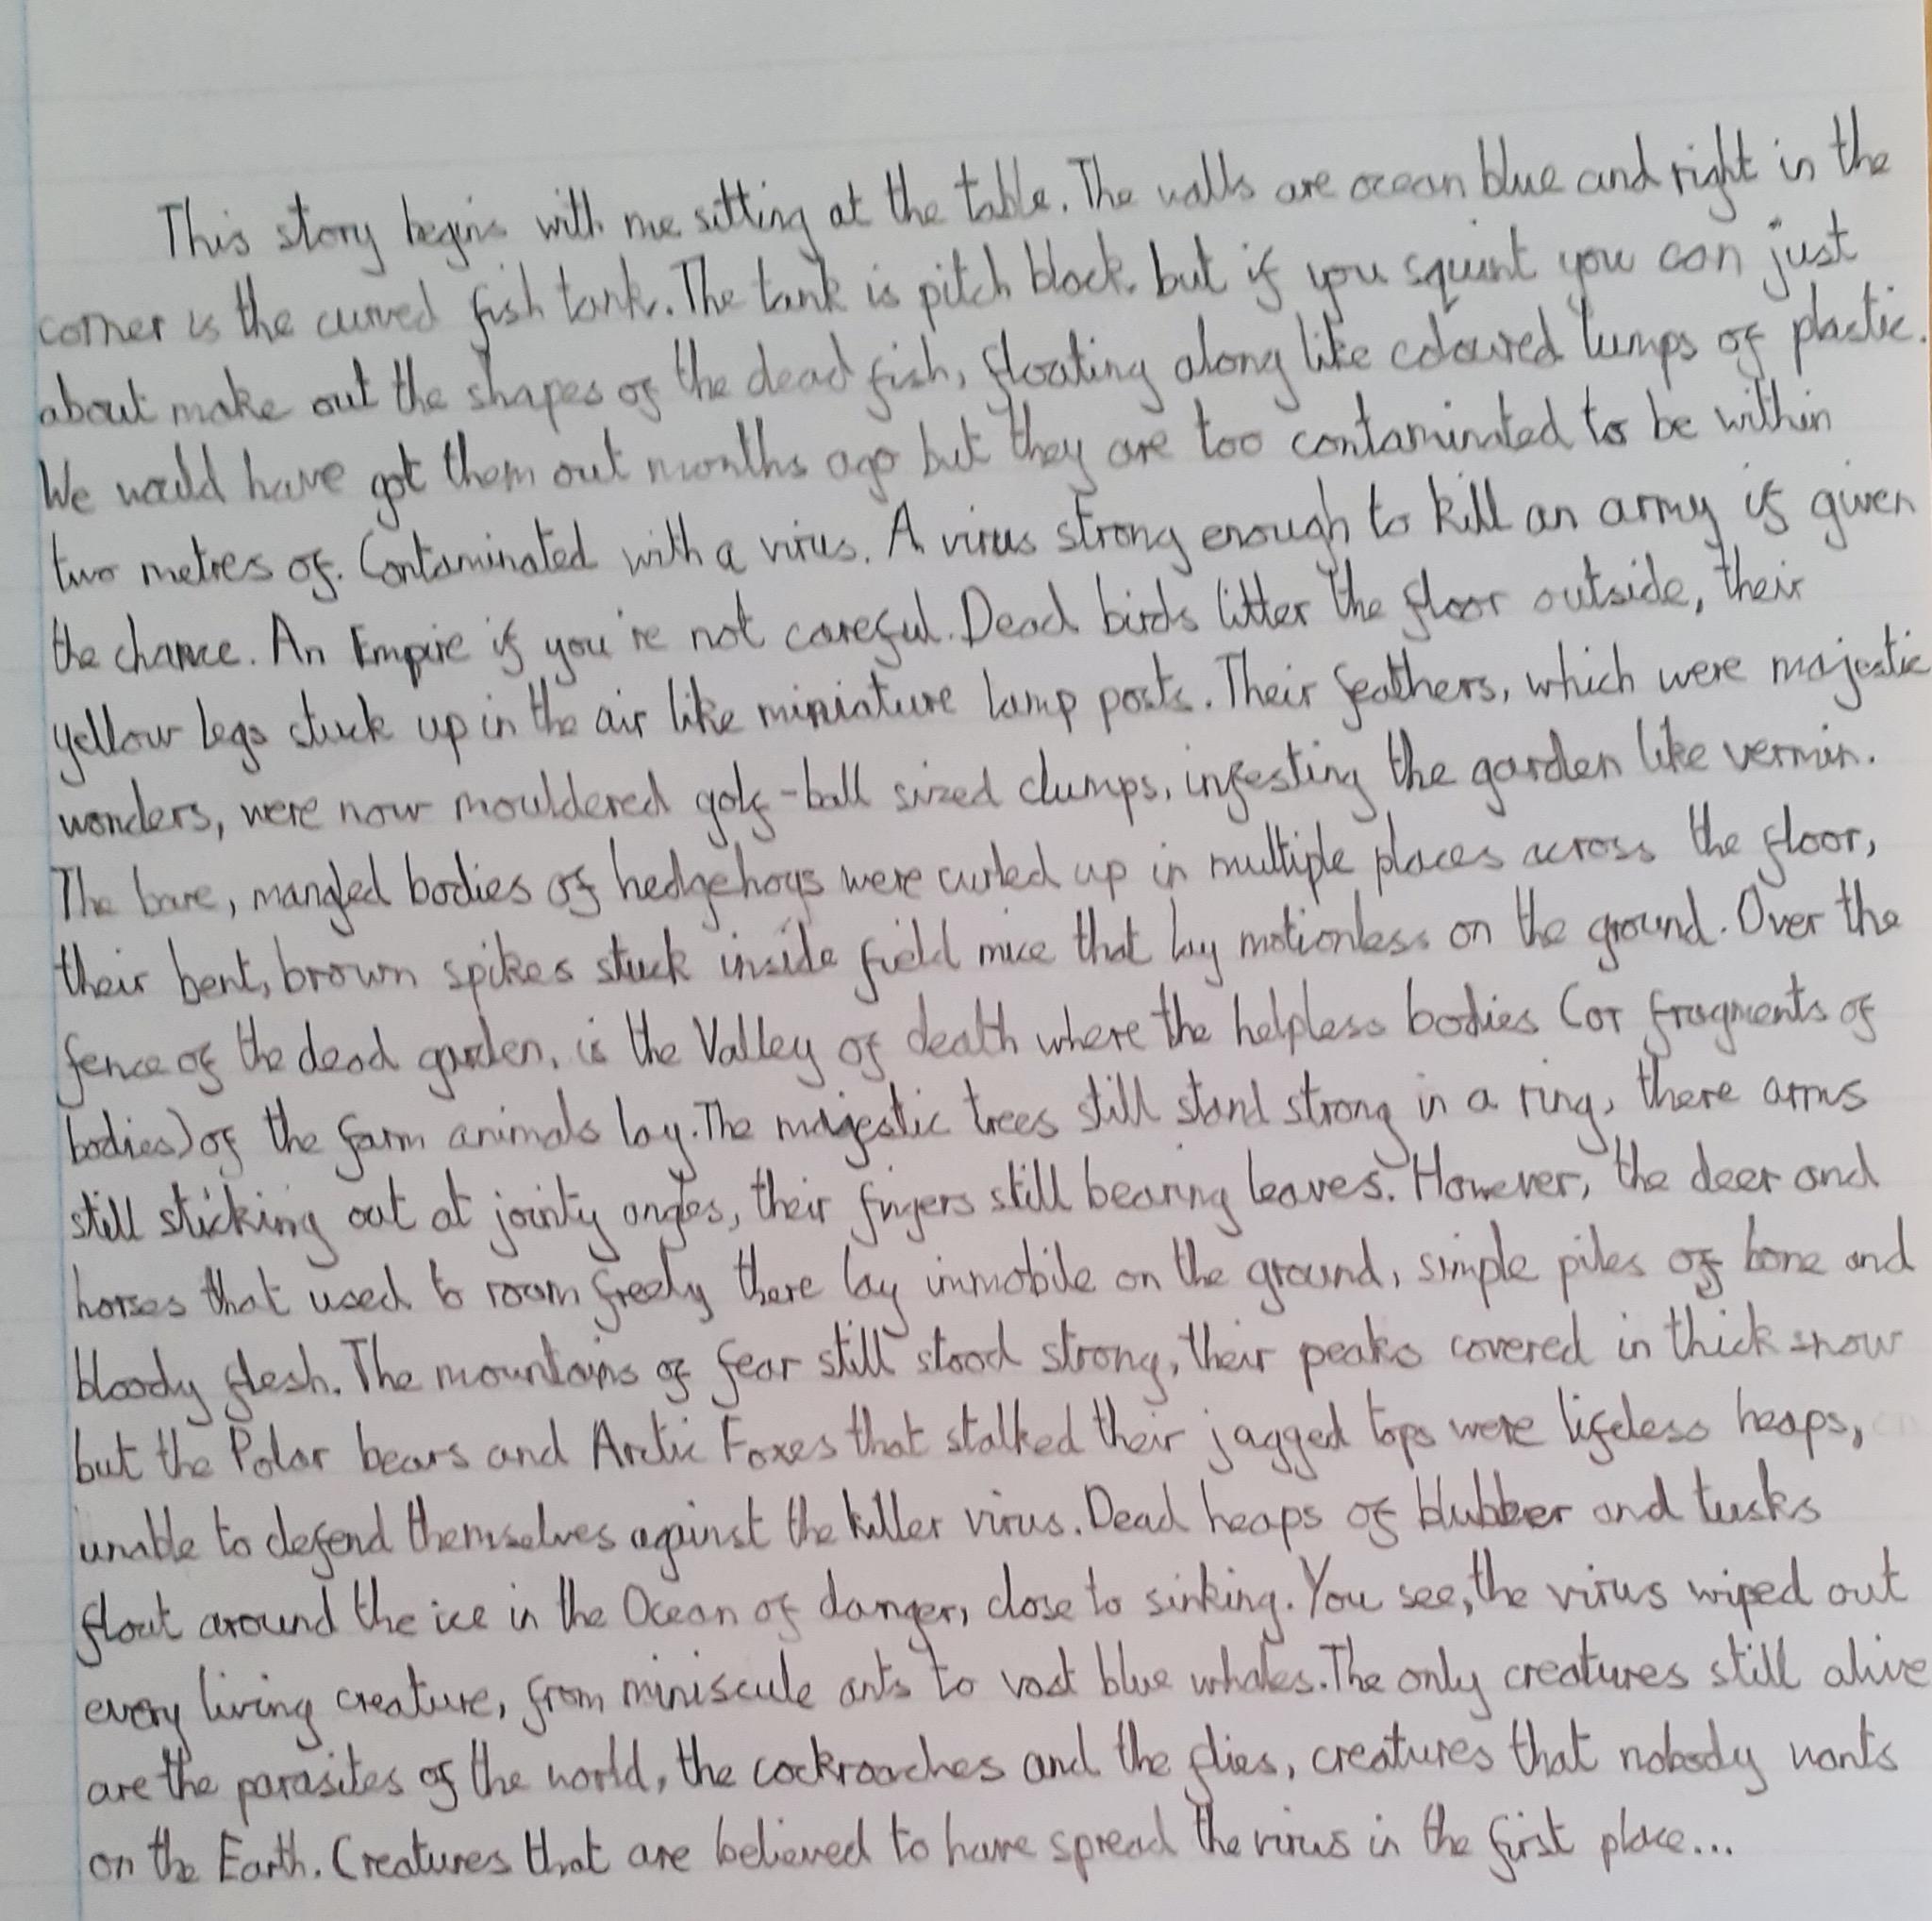 This story begins with me sitting at the table. The walls are ocean blue and right in the
corner is the curved fish tank. The tank is pitch black, but if you squint you can just
about make out the shapes of the dead fish, floating along like coloured lumps of plastic.
We would have got them out months ago but they are too contaminated to be within
two metres of. Contaminated with a virus. A virus strong enough to kill an army if given
the chance. An Empire if you're not careful. Dead birds litter the floor outside, their
yellow legs stuck up in the air like miniature lamp posts. Their feathers, which were majestic
wonders, were now mouldered golf-ball sized clumps, infesting the garden like vermin.
The bare, mangled bodies of hedgehogs were curled up in multiple places across the floor,
their bent, brown spikes stuck inside field mice that lay motionless on the ground. Over the
fence of the dead garden, is the Valley of death where the helpless bodies (or fragments of
bodies) of the farm animals lay. The majestic trees still stand strong in a ring, there arms
still sticking out at jointy angles, their fingers still bearing leaves. However, the deer and
horses that used to roam freely there lay immobile on the ground, simple piles of bone and
bloody flesh. The mountains of fear still stood strong, their peaks covered in thick snow
but the Polar bears and Arctic Foxes that stalked their jagged tops were lifeless heaps,
unable to defend themselves against the killer virus. Dead heaps of blubber and tusks
float around the ice in the Ocean of danger, close to sinking. You see, the virus wiped out
every living creature, from miniscule ants to vast blue whales. The only creatures still alive
are the parasites of the world, the cockroaches and the flies, creatures that nobody wants
on the Earth. Creatures that are believed to have spread the virus in the first place...